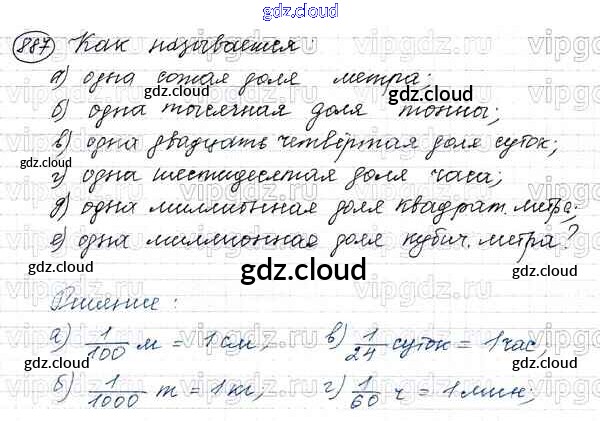 gdz.cloud
887 Как называется:
а) одна сотая доля метра;
gdz.cloud gdz.cloud
б) одна тысячная доля тонны;
в) одна двадцать четвёртая доля суток;
gdz.cloud gdz.cloud
г) одна шестидесятая доля часа;
д) одна миллионная доля квадрат. метра;
е) одна миллионная доля кубич. метра?
gdz.cloud gdz.cloud gdz.cloud
Решение:
а) 1/100 м = 1 см; в) 1/24 суток = 1 час;
gdz.cloud gdz.cloud
б) 1/1000 т = 1 кг; г) 1/60 ч = 1 мин;